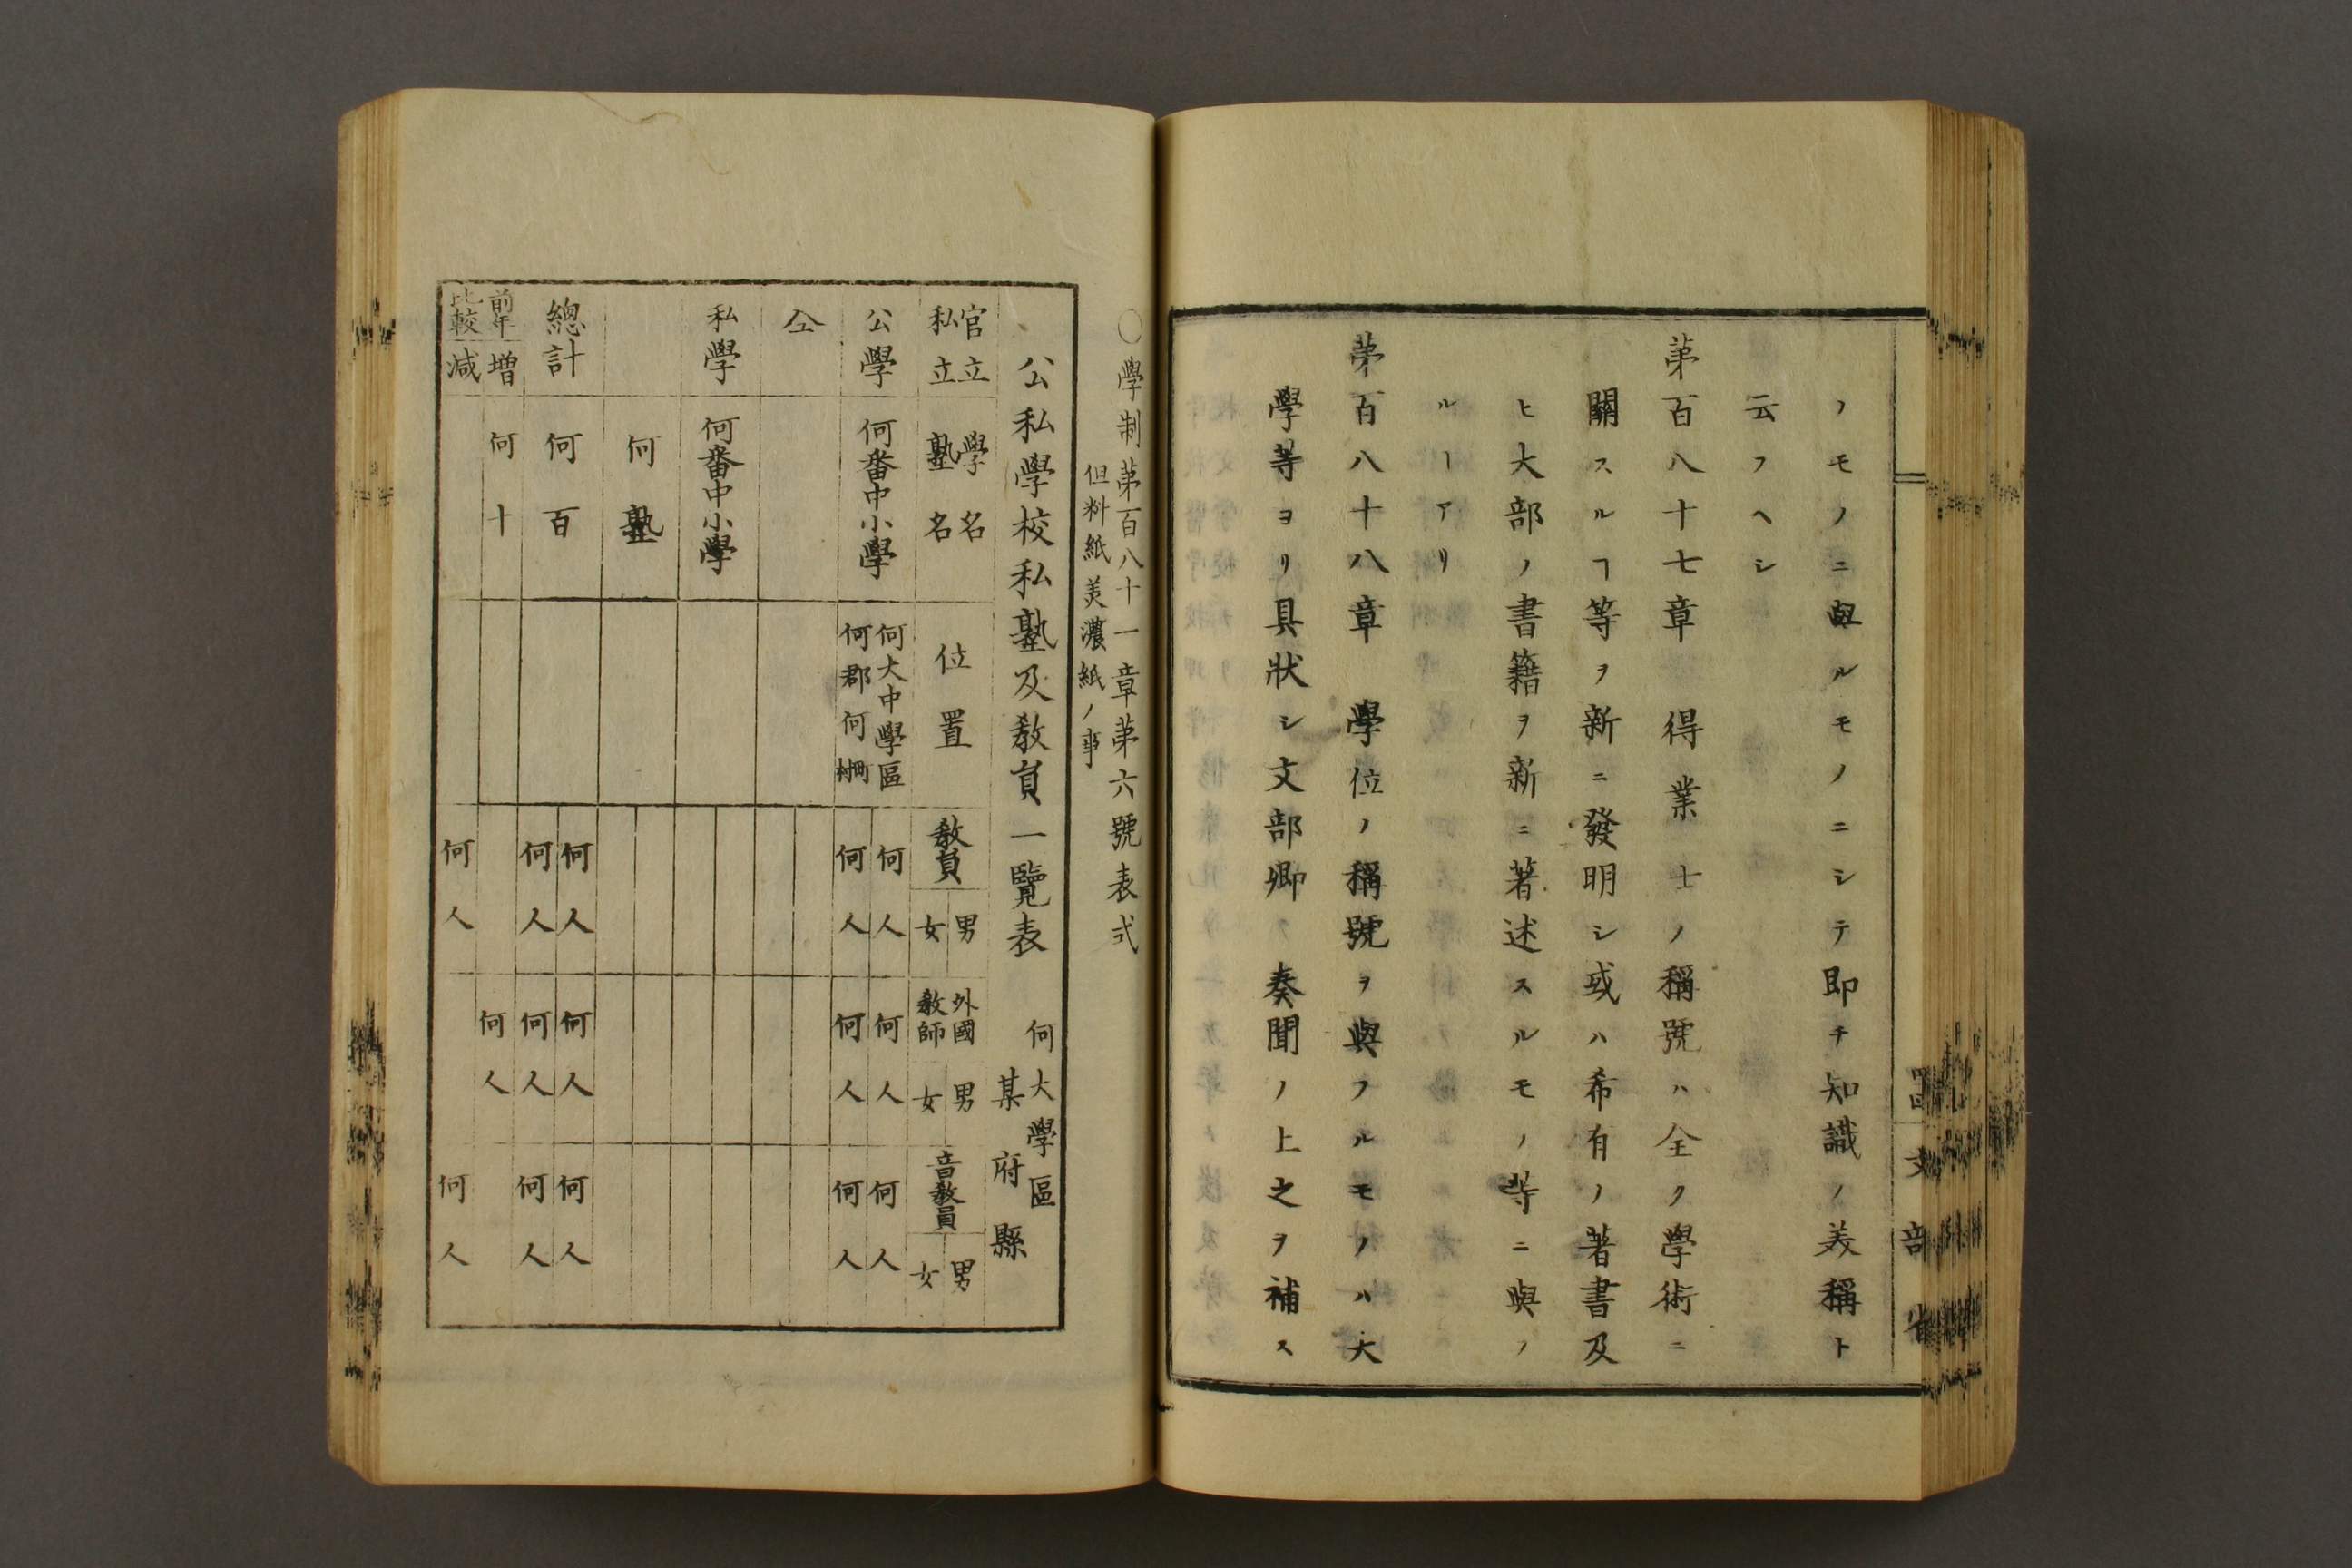 ノモノニ與ルモノニシテ即チ知識ノ美稱ト
云フヘシ
第百八十七章 得業士ノ稱號ハ全ク學術ニ
關スルヿ等ヲ新ニ發明シ或ハ希有ノ著書及
ヒ大部ノ書籍ヲ新ニ著述スルモノ等ニ與フ
ルーアリ
第百八十八章 學位ノ稱號ヲ與フルモノハ大
學等ヨリ具狀シ文部卿ノ奏聞ノ上之ヲ補ス
文部省
○學制第百八十一章第六號表式
但料紙美濃紙ノ事
公私學校私塾及教員一覽表
何大學區
某府縣
官立
私立
學名
塾名
位置
教員
男
女
外國
教師
男
女
音教員
男
女
公學
何番中小學
何大中學區
何郡何町村
何人
何人
何人
何人
何人
何人
仝
私學
何番中小學
何塾
總計
何百
何人
何人
何人
何人
何人
何人
前年
比較
增
減
何十
何人
何人
何人